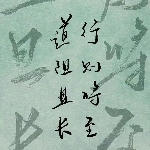 行则時至
道阻且长